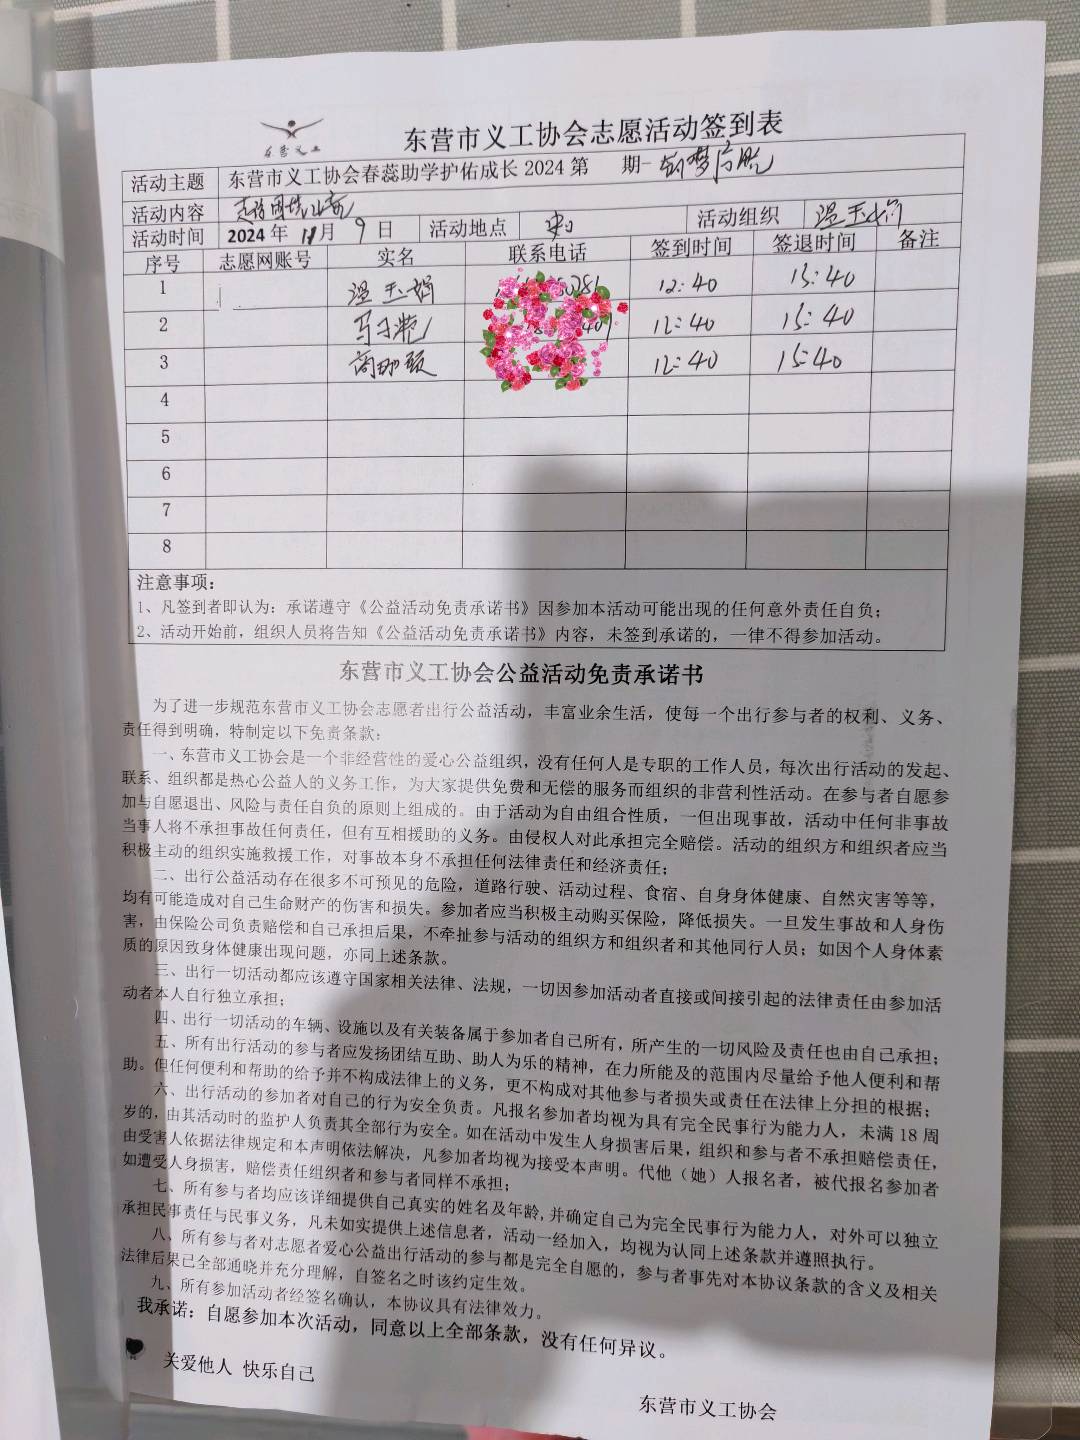 东营义工
东营市义工协会志愿活动签到表
活动主题 东营市义工协会春蕊助学护佑成长 2024 第 期-
活动内容
活动时间 2024 年 11月 9 日 活动地点 活动组织 温玉娟
序号 志愿网账号 实名 联系电话 签到时间 签退时间 备注
1 温玉娟 12:40 15:40
2 12:40 15:40
3 12:40 15:40
4
5
6
7
8
注意事项：
1、凡签到者即认为：承诺遵守《公益活动免责承诺书》因参加本活动可能出现的任何意外责任自负；
2、活动开始前，组织人员将告知《公益活动免责承诺书》内容，未签到承诺的，一律不得参加活动。
东营市义工协会公益活动免责承诺书
为了进一步规范东营市义工协会志愿者出行公益活动，丰富业余生活，使每一个出行参与者的权利、义务、
责任得到明确，特制定以下免责条款：
一、东营市义工协会是一个非经营性的爱心公益组织，没有任何人是专职的工作人员，每次出行活动的发起、
联系、组织都是热心公益人的义务工作，为大家提供免费和无偿的服务而组织的非营利性活动。在参与者自愿参
加与自愿退出、风险与责任自负的原则上组成的。由于活动为自由组合性质，一但出现事故，活动中任何非事故
当事人将不承担事故任何责任，但有互相援助的义务。由侵权人对此承担完全赔偿。活动的组织方和组织者应当
积极主动的组织实施救援工作，对事故本身不承担任何法律责任和经济责任；
二、出行公益活动存在很多不可预见的危险，道路行驶、活动过程、食宿、自身身体健康、自然灾害等等，
均有可能造成对自己生命财产的伤害和损失。参加者应当积极主动购买保险，降低损失。一旦发生事故和人身伤
害，由保险公司负责赔偿和自己承担后果，不牵扯参与活动的组织方和组织者和其他同行人员；如因个人身体素
质的原因致身体健康出现问题，亦同上述条款。
三、出行一切活动都应该遵守国家相关法律、法规，一切因参加活动者直接或间接引起的法律责任由参加活
动者本人自行独立承担；
四、出行一切活动的车辆、设施以及有关装备属于参加者自己所有，所产生的一切风险及责任也由自己承担；
五、所有出行活动的参与者应发扬团结互助、助人为乐的精神，在力所能及的范围内尽量给予他人便利和帮
助。但任何便利和帮助的给予并不构成法律上的义务，更不构成对其他参与者损失或责任在法律上分担的根据；
六、出行活动的参加者对自己的行为安全负责。凡报名参加者均视为具有完全民事行为能力人，未满 18 周
岁的，由其活动时的监护人负责其全部行为安全。如在活动中发生人身损害后果，组织和参与者不承担赔偿责任，
由受害人依据法律规定和本声明依法解决，凡参加者均视为接受本声明。代他（她）人报名者，被代报名参加者
如遭受人身损害，赔偿责任组织者和参与者同样不承担；
七、所有参与者均应该详细提供自己真实的姓名及年龄，并确定自己为完全民事行为能力人，对外可以独立
承担民事责任与民事义务，凡未如实提供上述信息者，活动一经加入，均视为认同上述条款并遵照执行。
八、所有参与者对志愿者爱心公益出行活动的参与都是完全自愿的，参与者事先对本协议条款的含义及相关
法律后果已全部通晓并充分理解，自签名之时该约定生效。
九、所有参加活动者经签名确认，本协议具有法律效力。
我承诺：自愿参加本次活动，同意以上全部条款，没有任何异议。
关爱他人 快乐自己
东营市义工协会